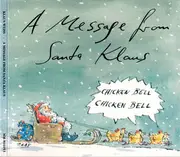 A Message from
Santa Klaus
CHICKEN BELL
CHICKEN BELL